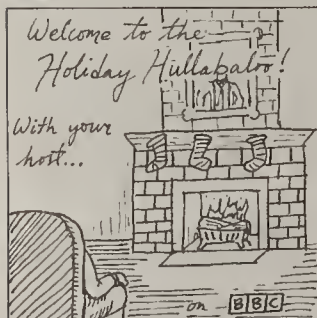 Welcome to the
Holiday Hullabaloo!
With your
host...
on BBC